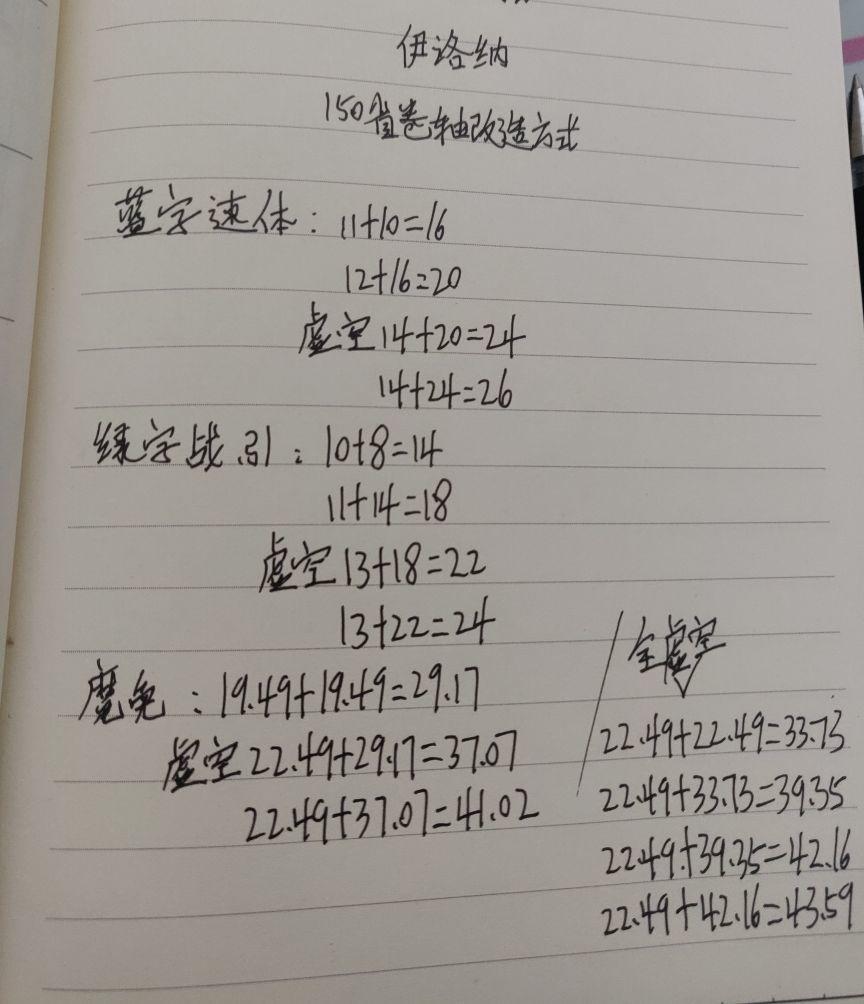 伊洛纳
150省卷轴改造方式
蓝字速体：11+10=16
12+16=20
虚空14+20=24
14+24=26
绿字战.引：10+8=14
11+14=18
虚空13+18=22
13+22=24
魔免：19.49+19.49=29.17
虚空22.49+29.17=37.07
22.49+37.07=41.02
全虚空
22.49+22.49=33.73
22.49+33.73=39.35
22.49+39.35=42.16
22.49+42.16=43.59